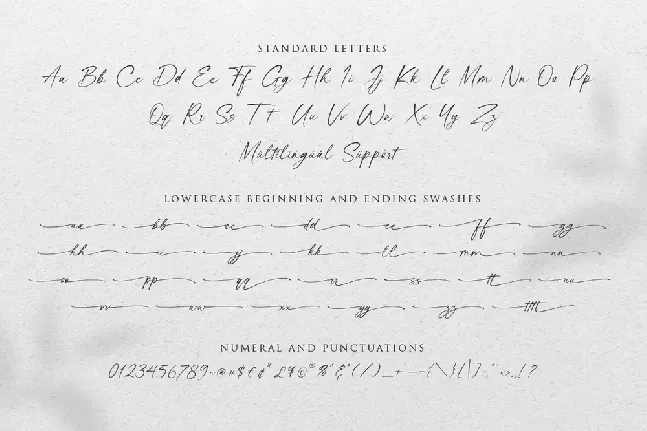 STANDARD LETTERS
Aa Bb Cc Dd Ee Ff Gg Hh Ii Jj Kk Ll Mm Nn Oo Pp
Qq Rr Ss Tt Uu Vv Ww Xx Yy Zz
Multilingual Support
LOWERCASE BEGINNING AND ENDING SWASHES
aa bb cc dd ee ff gg
hh ii jj kk ll mm nn
oo pp qq rr ss tt uu
vv ww xx yy zz tttt
NUMERAL AND PUNCTUATIONS
0123456789